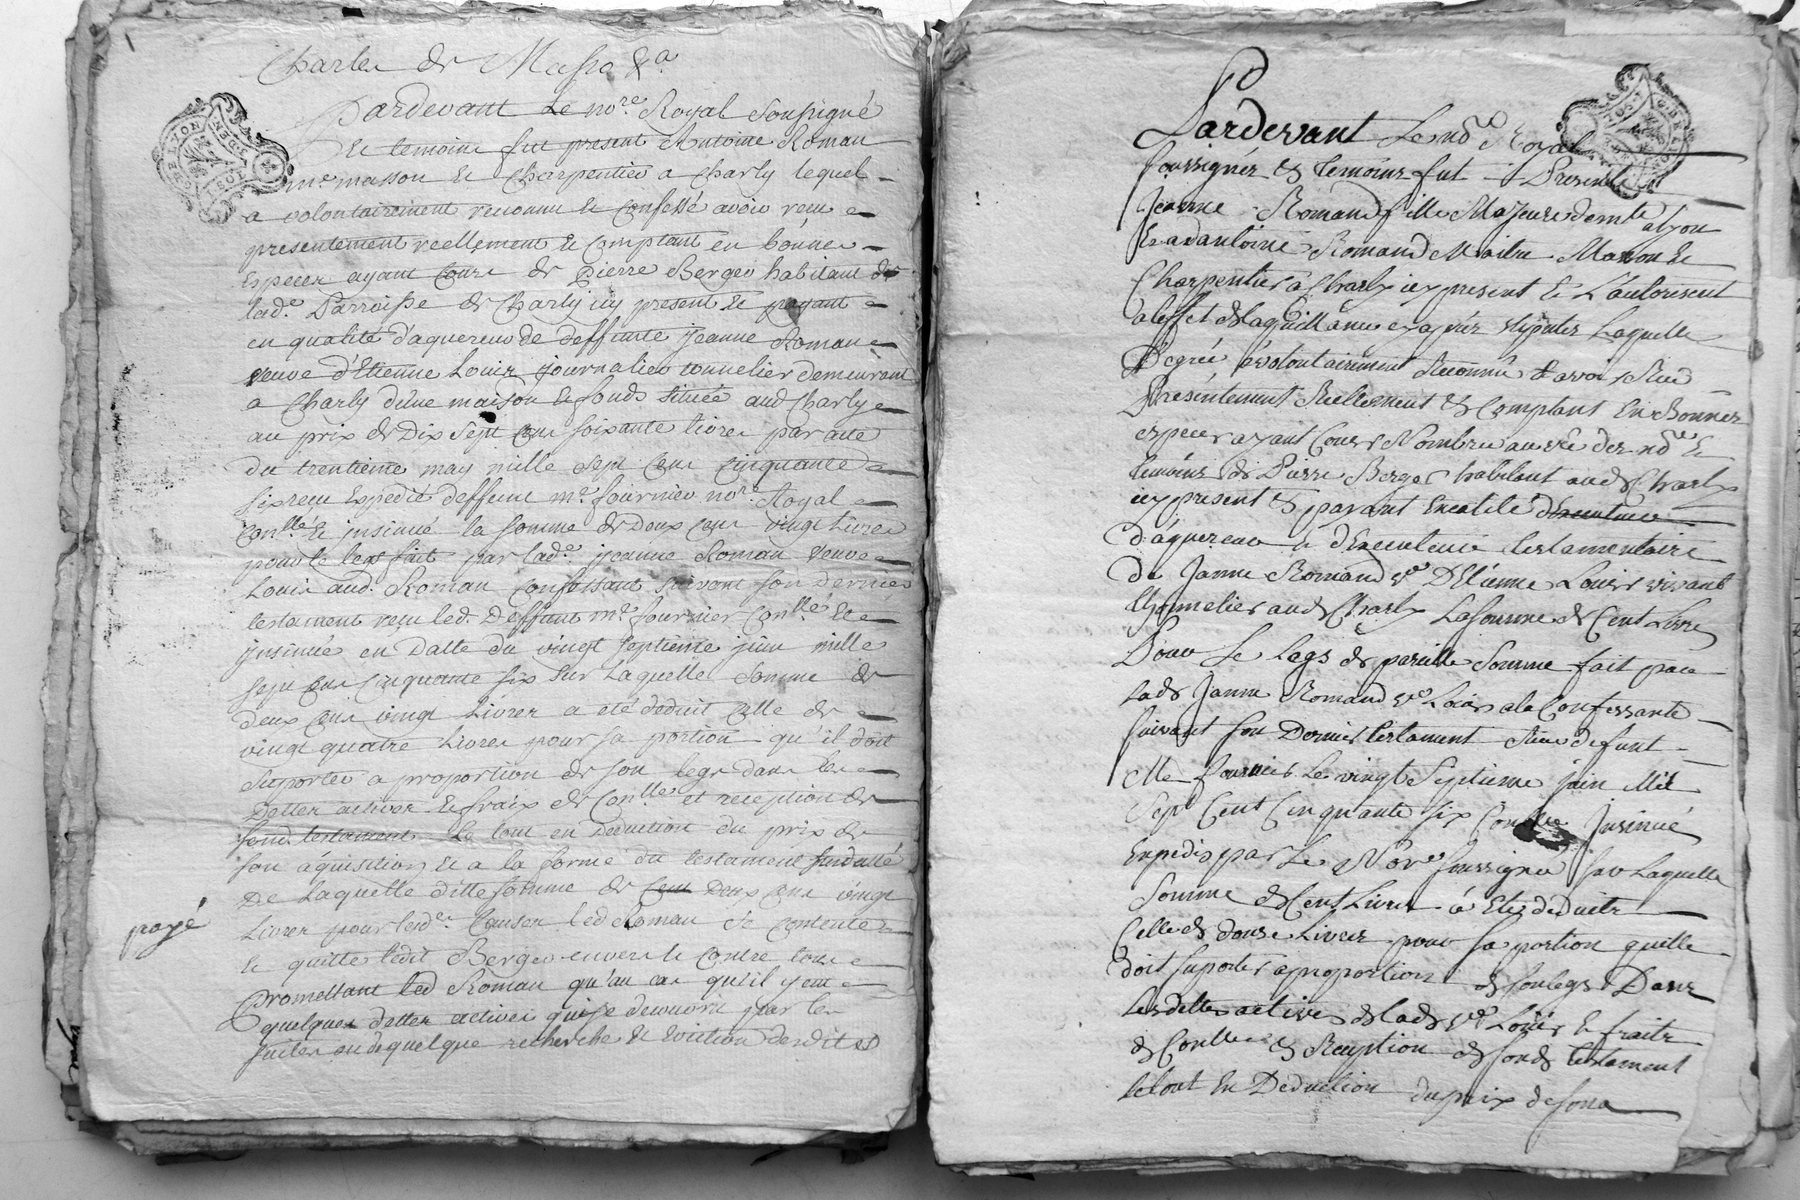 Charles de Masso &a
Pardevant Le nore Royal Soussigné
Et temoins fut present Antoine Roman
me masson Et Charpentier a Charly lequel
a volontairement reconnu Et Confessé avoir reçu
presentement reellement Et Comptant en bonnes
Especes ayant Cours de Pierre Berger habitant de
lade Parroisse de Charly icy present Et payant
en qualité d'aquereur de deffunte jeanne Roman
veuve d'Etienne Louis journalier tonnelier demeurant
a Charly d'une maison Et fonds située aud Charly
au prix de Dix Sept Cens soixante livres par acte
du trentieme may mille Sept Cens Cinquante
six reçu Expedié deffunt me fournier nore Royal
Conllé Et insinué la somme de Deux Cens vingt Livres
pour le legs fait par lade jeanne Roman veuve
Louis aud. Roman Confessant suivant son Dernier
testament reçu led. Deffunt me fournier Conllé Et
insinué en Datte du vingt septieme juin mille
sept Cens Cinquante six sur Laquelle Somme de
deux Cens vingt Livres a eté deduit Celle de
vingt quatre Livres pour sa portion qu'il doit
suporter a proportion de son legs dans les
Dettes actives Et fraix de Conlle et reception de
sond testament Le tout en Deduction du prix de
son aquisition Et a la forme du testament susdatté
De Laquelle ditte somme de Cent Deux Cens vingt
payé
Livres pour lesdes Causes led Roman se contente
Et quitte ledit Berger envers Et Contre tous
Promettant led Roman qu'au cas qu'il y eut
quelques dettes actives qui se decouvrit par les
suites ou quelque recherche Et Eviction desdits
Pardevant Le nore Royal
soussignez & temoins fut Presente
Jeanne Romand fille Majeure demte a lyon
Romand Maitre Masson Et
Charpentier a Charly icy present Et L'autorisent
a leffet de la quittance cy apres stipulée Laquelle
De gré a volontairement Reconnu avoir Reçu
Présentement Réellement & Comptant En Bonnes
especes ayant Cours Nombrée au vû des nores Et
temoins de Pierre Berger habitant aud Charly
icy present & payant En calité d'heritier
d'aquereur Et d'Executeur testamentaire
De Janne Romand ve D'Etienne Louis vivant
thonnelier aud Charly La somme de Cent Livres
Pour Le Legs de pareille Somme fait par
lad Janne Romand ve Louis a la Confessante
suivant son Dernier testament Reçu defunt
Me fournier Le vingt Septieme juin Mil
Sept Cent Cinquante six Conllé Insinué
Expedié par Le Nore soussigné sur Laquelle
Somme de Cent Livres a Eté deduitte
Celle de douse Livres pour sa portion quelle
doit suporter a proportion de son legs Dans
Les dettes actives de lad ve Louis Et fraits
de Conlle & Reception de sond testament
le tout En Deduction du prix de son